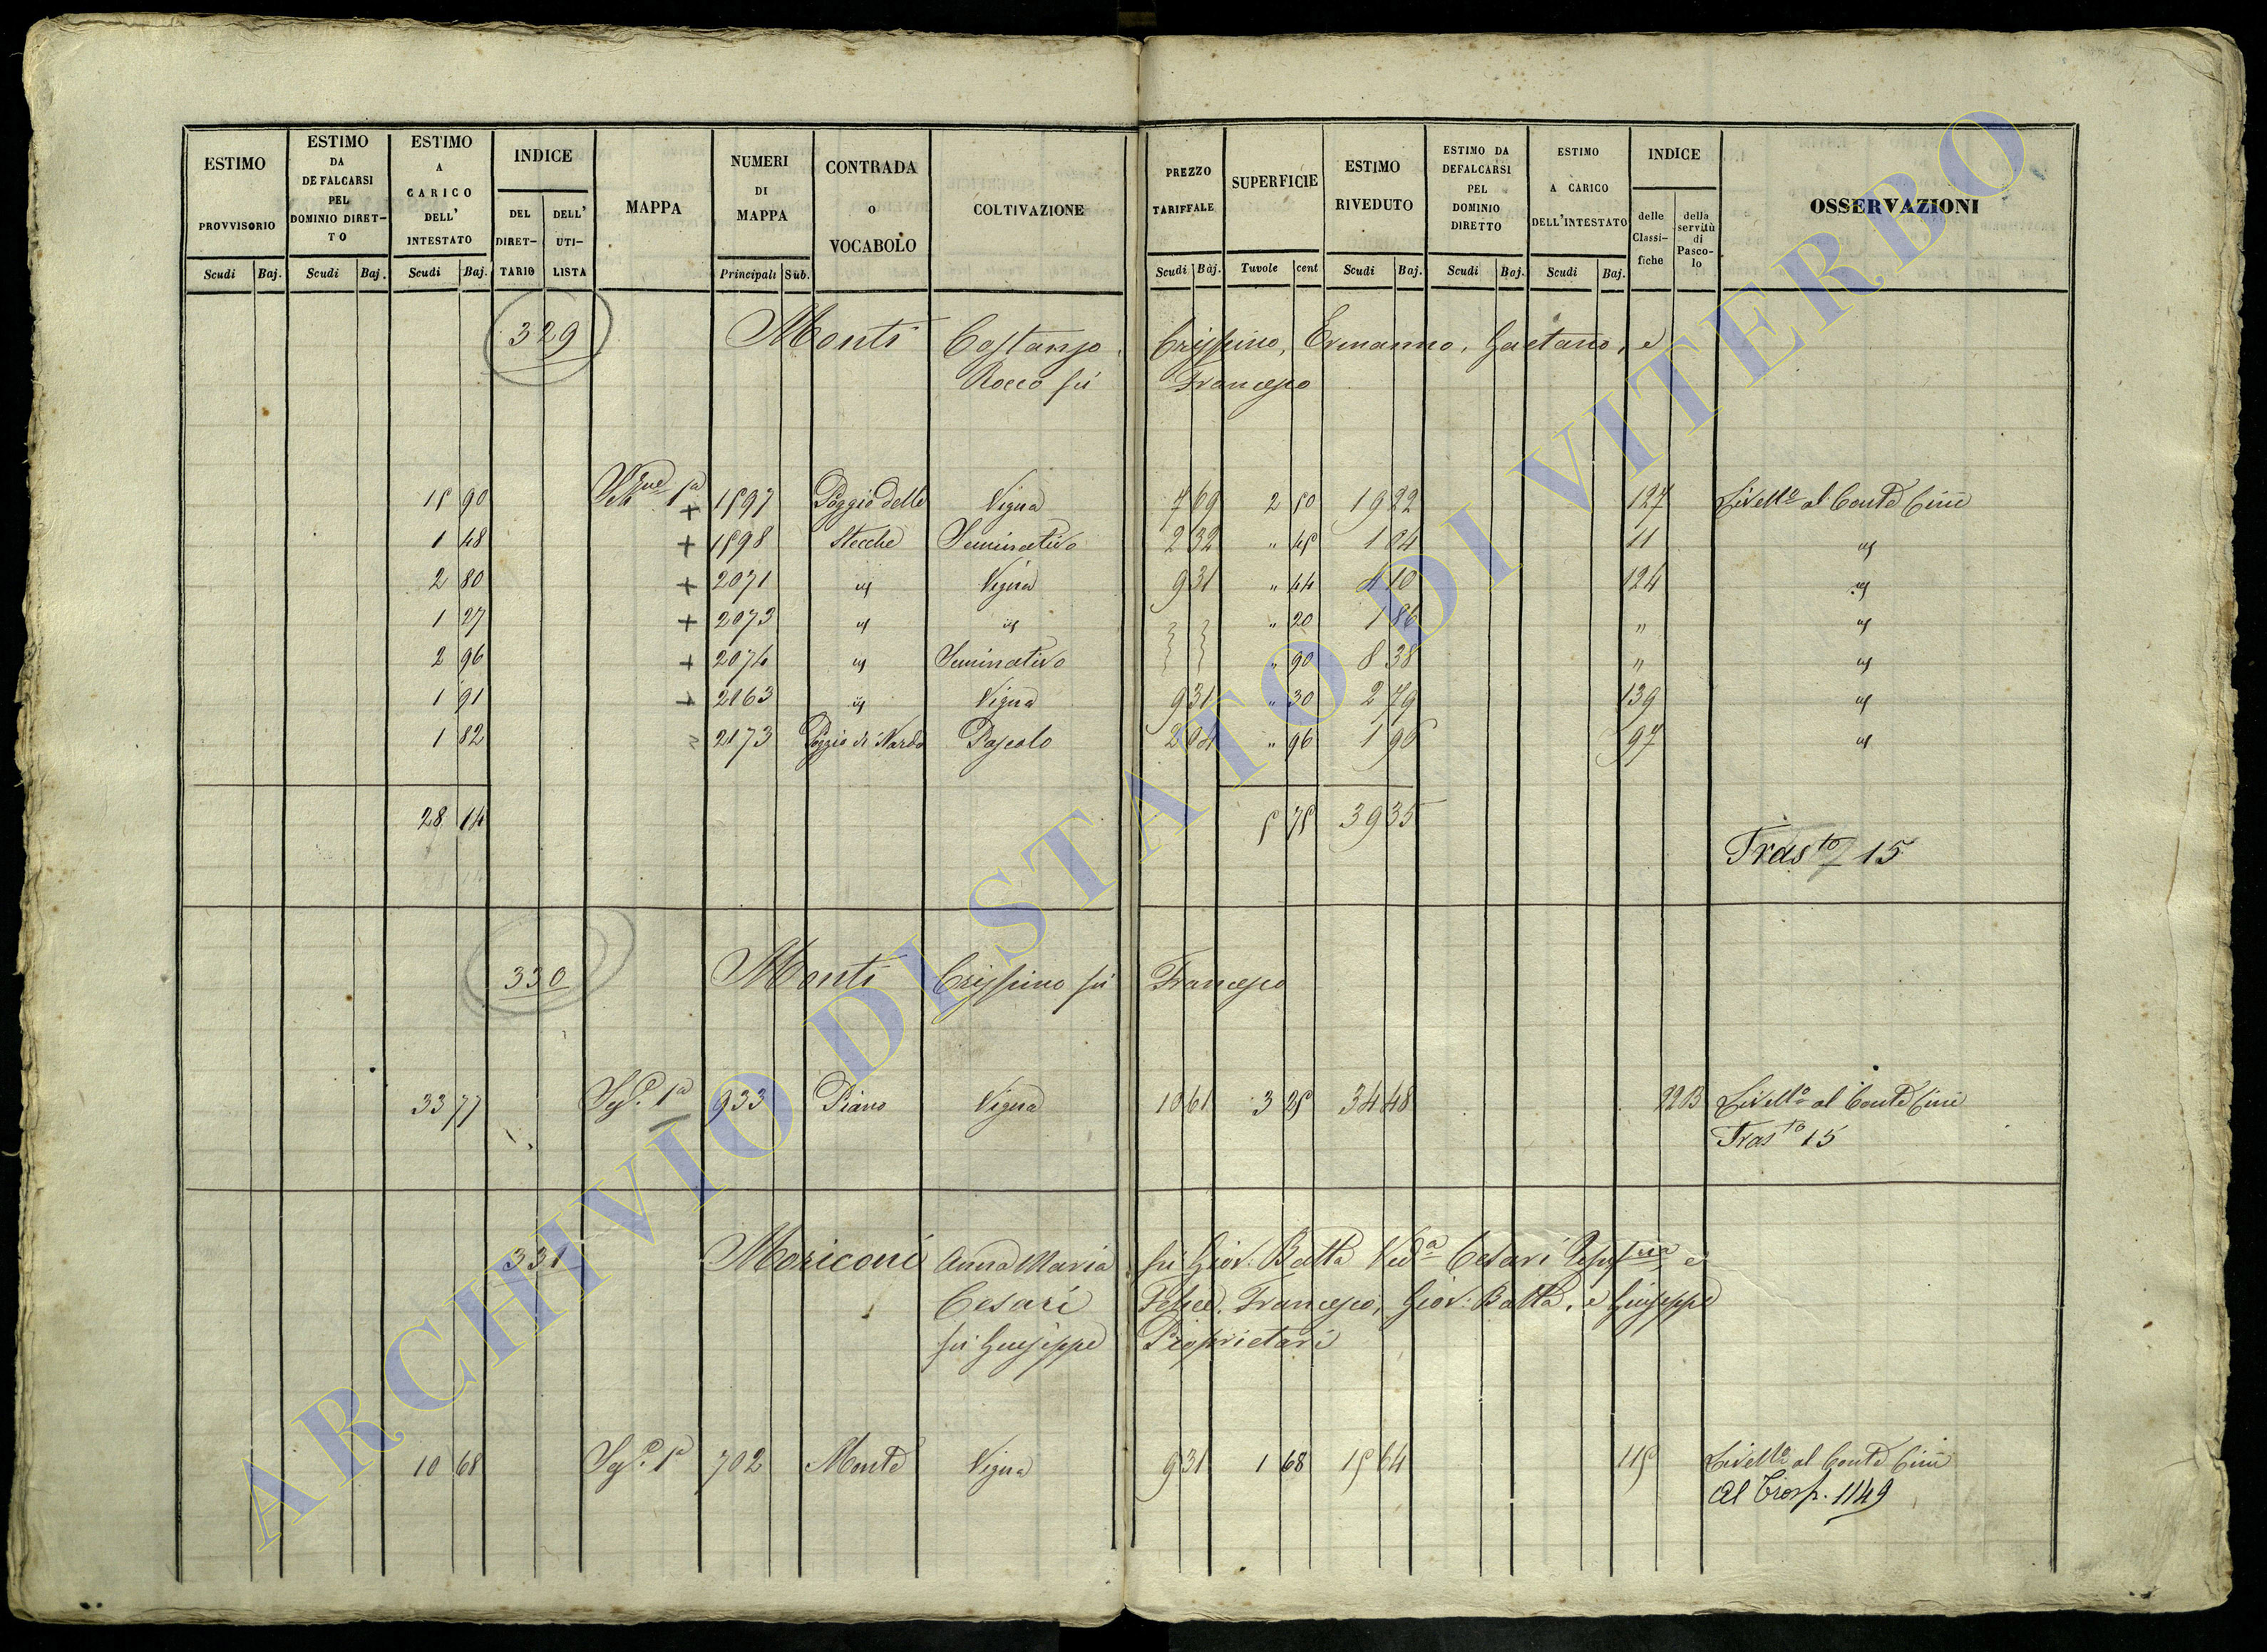 ESTIMO PROVVISORIO | ESTIMO DA DEFALCARSI PEL DOMINIO DIRET-TO | ESTIMO A CARICO DELL' INTESTATO | INDICE DEL DIRET-TARIO | DELL' UTI-LISTA | MAPPA | NUMERI DI MAPPA | CONTRADA O VOCABOLO | COLTIVAZIONE | PREZZO TARIFFALE | SUPERFICIE | ESTIMO RIVEDUTO | ESTIMO DA DEFALCARSI PEL DOMINIO DIRETTO | ESTIMO A CARICO DELL'INTESTATO | INDICE delle Classi-fiche | della servitù di Pasco-lo | OSSERVAZIONI
Scudi Baj. | Scudi Baj. | Scudi Baj. | Principali Sub. | Scudi Baj. | Tavole cent | Scudi Baj. | Scudi Baj. | Scudi Baj.
329 Monti Costanzo, Crispino, Ermanno, Gaetano, e
Rocco fù Francesco
15 90 1ª + 1597 Poggio delle Vigna 7 69 2 50 19 22 127 Livellº al Conte Cini
1 48 + 1598 Stecche Seminativo 2 32 " 45 1 04 11 id
2 80 + 2071 id Vigna 9 31 " 44 4 10 124 id
1 27 + 2073 id id " 20 1 86 " id
2 96 + 2074 id Seminativo " 90 8 38 " id
1 91 + 2163 id Vigna 9 31 " 30 2 79 139 id
1 82 2173 Poggio di Nardo Pascolo 2 04 " 96 1 96 97 id
28 14 5 75 39 35
Trasto 15
330 Monti Crispino fù Francesco
33 77 1ª 933 Piano Vigna 10 61 3 25 34 48 Livellº al Conte Cini
Trasto 15
331 Moriconi Anna Maria fù Giov: Batta Vedª Cesari e
Cesari Felice, Francesco, Giov: Batta, e Giuseppe
fù Giuseppe Proprietari
10 68 1ª 702 Monte Vigna 9 31 1 68 15 64 115 Livellº al Conte Cini
Al Trasp. 1149
ARCHIVIO DI STATO DI VITERBO